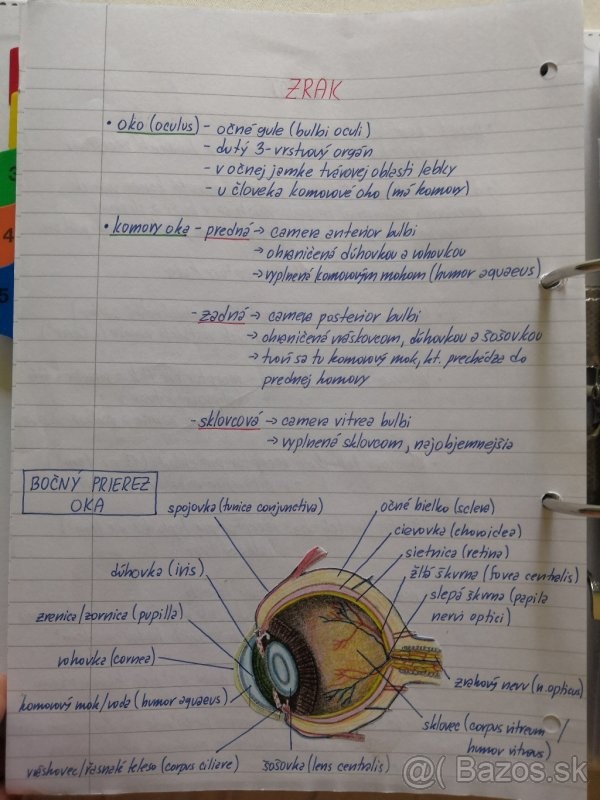 ZRAK
• oko (oculus) - očné gule (bulbi oculi)
- dutý 3-vrstvový orgán
- v očnej jamke tvárovej oblasti lebky
- u človeka komorové oko (má komory)
• komory oka - predná → camera anterior bulbi
→ ohraničená dúhovkou a rohovkou
→ vyplnená komorovým mokom (humor aquaeus)
- zadná → camera posterior bulbi
→ ohraničená vráskovcom, dúhovkou a šošovkou
→ tvorí sa tu komorový mok, kt. prechádza do
prednej komory
- sklovcová → camera vitrea bulbi
→ vyplnená sklovcom, najobjemnejšia
BOČNÝ PRIEREZ
OKA
spojovka (tunica conjunctiva)
očné bielko (sclera)
cievovka (choroidea)
sietnica (retina)
žltá škvrna (fovea centralis)
slepá škvrna (papila
nervi optici)
dúhovka (iris)
zrenica/zornica (pupilla)
rohovka (cornea)
komorový mok/voda (humor aquaeus)
vráskovec/řasnaté teleso (corpus ciliare)
šošovka (lens centralis)
zrakový nerv (n. opticus)
sklovec (corpus vitreum /
humor vitreus)
3
4
5
@( Bazos.sk